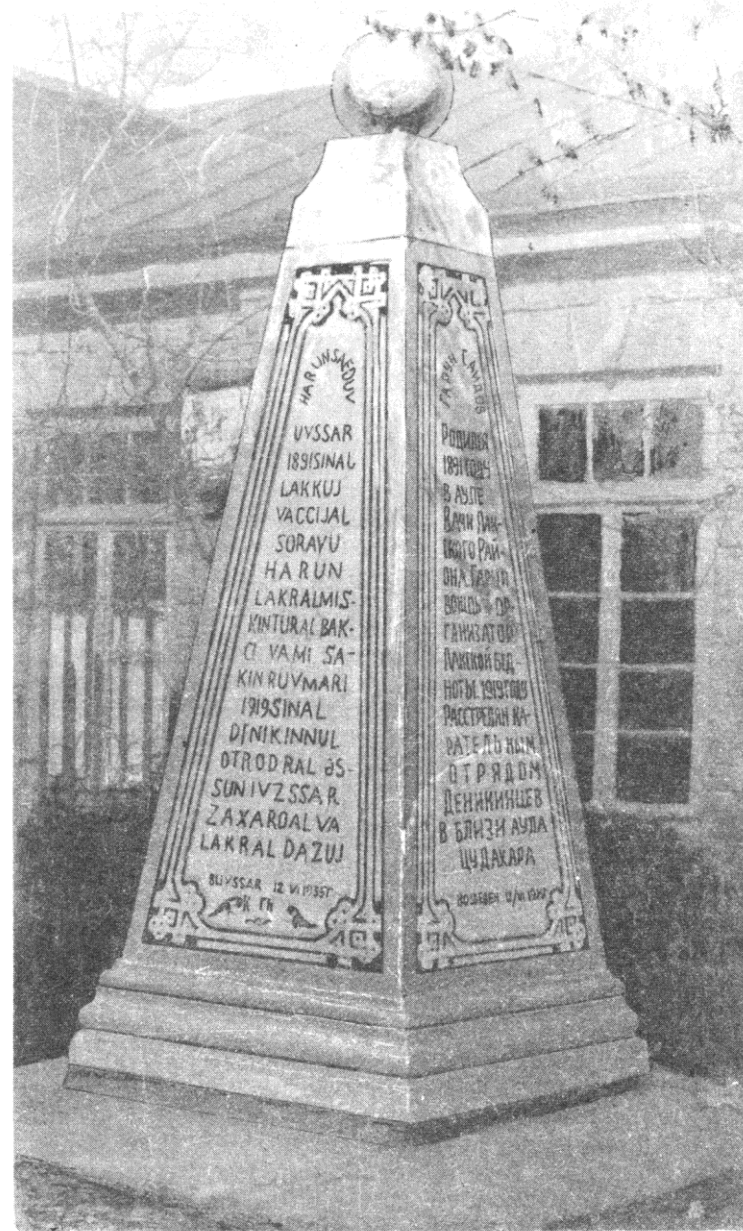 HARUNSAEDUV
UVSSAR
1891SINAL
LAKKUJ
VACCIJAL
SORAVU
HARUN
LAKRALMIS-
KINTURAL BAK-
CI VAMI SA-
KINRUVMARI
1919SINAL
DINIKINNUL
OTRODRAL ƏS-
SUNIVZSSAR
ZAXARDALVA
LAKRAL DAZUJ
BUVSSAR 12 VI 1935Г
ГАРУН САИДОВ
РОДИЛСЯ
1891ГОДУ
В АУЛЕ
ВАЧИ ЛАК-
СКОГО РАЙ-
ОНА. ГАРУН
ВОЖДЬ И ОР-
ГАНИЗАТОР
ЛАКСКОЙ БЕД-
НОТЫ. 1919ГОДУ
РАССТРЕЛЯН КА-
РАТЕЛЬНЫМ
ОТРЯДОМ
ДЕНИКИНЦЕВ
В БЛИЗИ АУЛА
ЦУДАКАРА